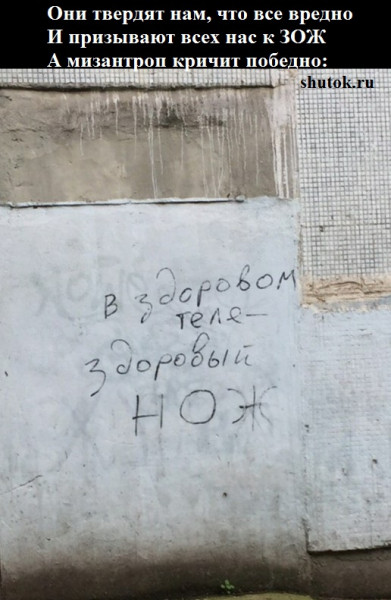 Они твердят нам, что все вредно
И призывают всех нас к ЗОЖ
А мизантроп кричит победно:
shutok.ru
в здоровом
теле-
здоровый
НОЖ